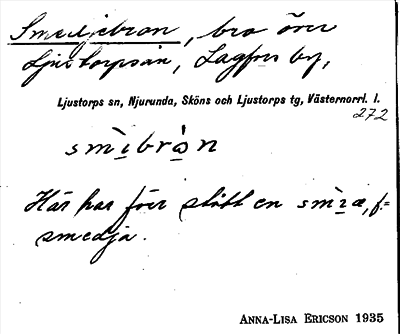 Smedjebron, bro över
Ljustorpsån, Lagfors by,
Ljustorps sn, Njurunda, Sköns och Ljustorps tg, Västernorrl. l.
272
smı̀brò̩n
Här har förr stått en smı̀æ, f.=
smedja.
ANNA-LISA ERICSON 1935